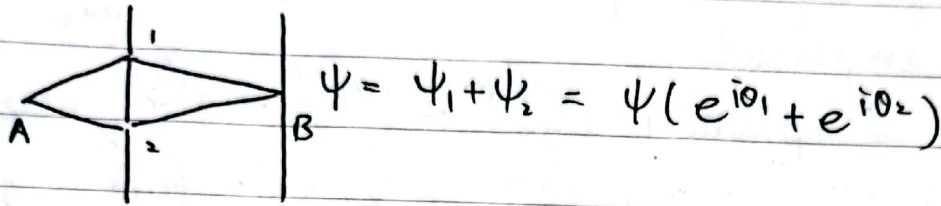 1
A
2
B
ψ = ψ₁ + ψ₂ = ψ( e^{iθ₁} + e^{iθ₂} )